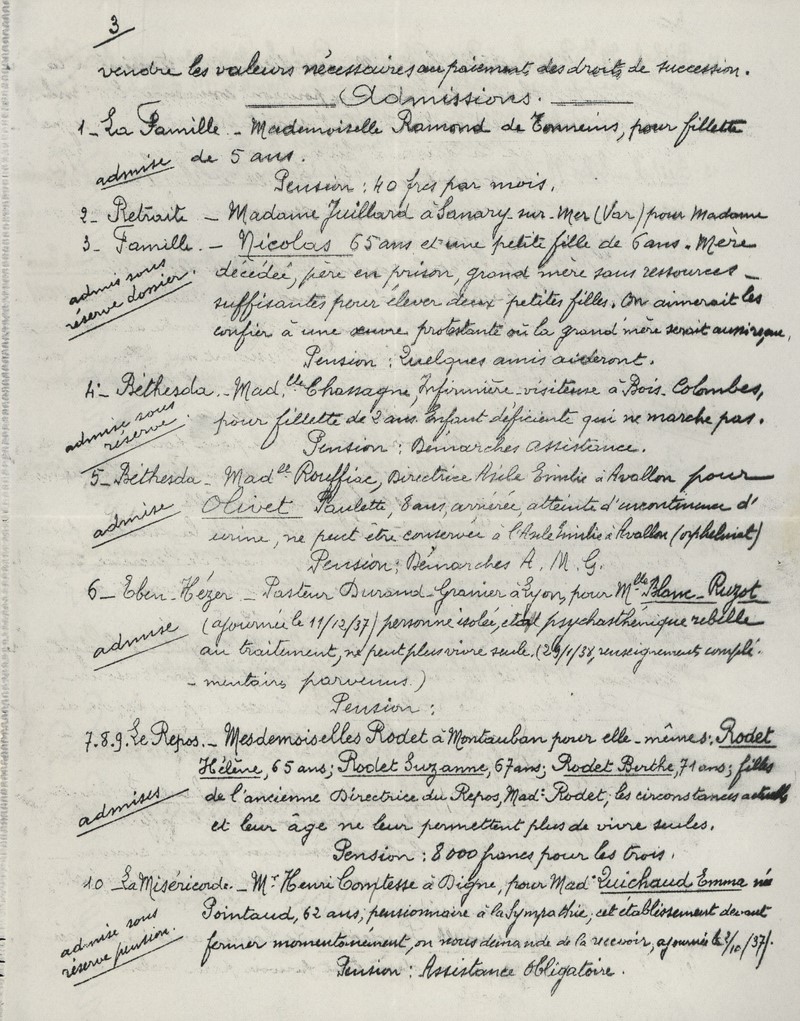 3
vendre les valeurs nécessaires au paiement des droits de succession.
Admissions.
1 - La Famille. - Mademoiselle Ramond de Tonneins, pour fillette
admise de 5 ans.
Pension : 40 frcs par mois.
2 - Retraite - Madame Juillard à Sanary-sur-Mer (Var) pour Madame
3 - Famille. - Nicolas 65 ans et une petite fille de 6 ans. Mère
admis sous réserve dossier. décédée, père en prison, grand mère sans ressources
suffisantes pour élever deux petites filles. On aimerait les
confier à une œuvre protestante où la grand'mère serait aussi reçue.
Pension : Quelques amis aideront.
4 - Béthesda. - Mad.lle Chassagne, Infirmière-visiteuse à Bois-Colombes,
admise sous réserve. pour fillette de 2 ans. Enfant déficiente qui ne marche pas.
Pension : Démarches assistance.
5 - Béthesda - Madelle Rouffiac, Directrice Asile Emilie à Avallon pour
admise Olivet Paulette, 8 ans, arriérée, atteinte d'incontinence d'
urine, ne peut être conservée à l'Asile Emilie à Avallon (orphelinat)
Pension : Démarches A. M. G.
6 - Eben-Hézer - Pasteur Durand-Granier à Lyon, pour Mlle Blanc-Ruzot
admise (ajournée le 11/12/37) personne isolée, état psychasthénique rebelle
au traitement, ne peut plus vivre seule. (29/1/38, renseignements complé-
-mentaires parvenus.)
Pension :
7.8.9. Le Repos. - Mesdemoiselles Rodet à Montauban pour elle-mêmes : Rodet
Hélène, 65 ans ; Rodet Suzanne, 67 ans ; Rodet Berthe, 71 ans ; filles
admises de l'ancienne Directrice du Repos, Made Rodet ; les circonstances actuelles
et leur âge ne leur permettent plus de vivre seules.
Pension : 8000 francs pour les trois.
10 - La Miséricorde. - Mr Henri Comtesse à Digne, pour Made Quichaud Emma née
admise sous réserve pension. Pointaud, 62 ans, pensionnaire à la Sympathie, cet établissement devant
fermer momentanément, on nous demande de la recevoir, ajournée le 2/10/37.
Pension : Assistance Obligatoire.